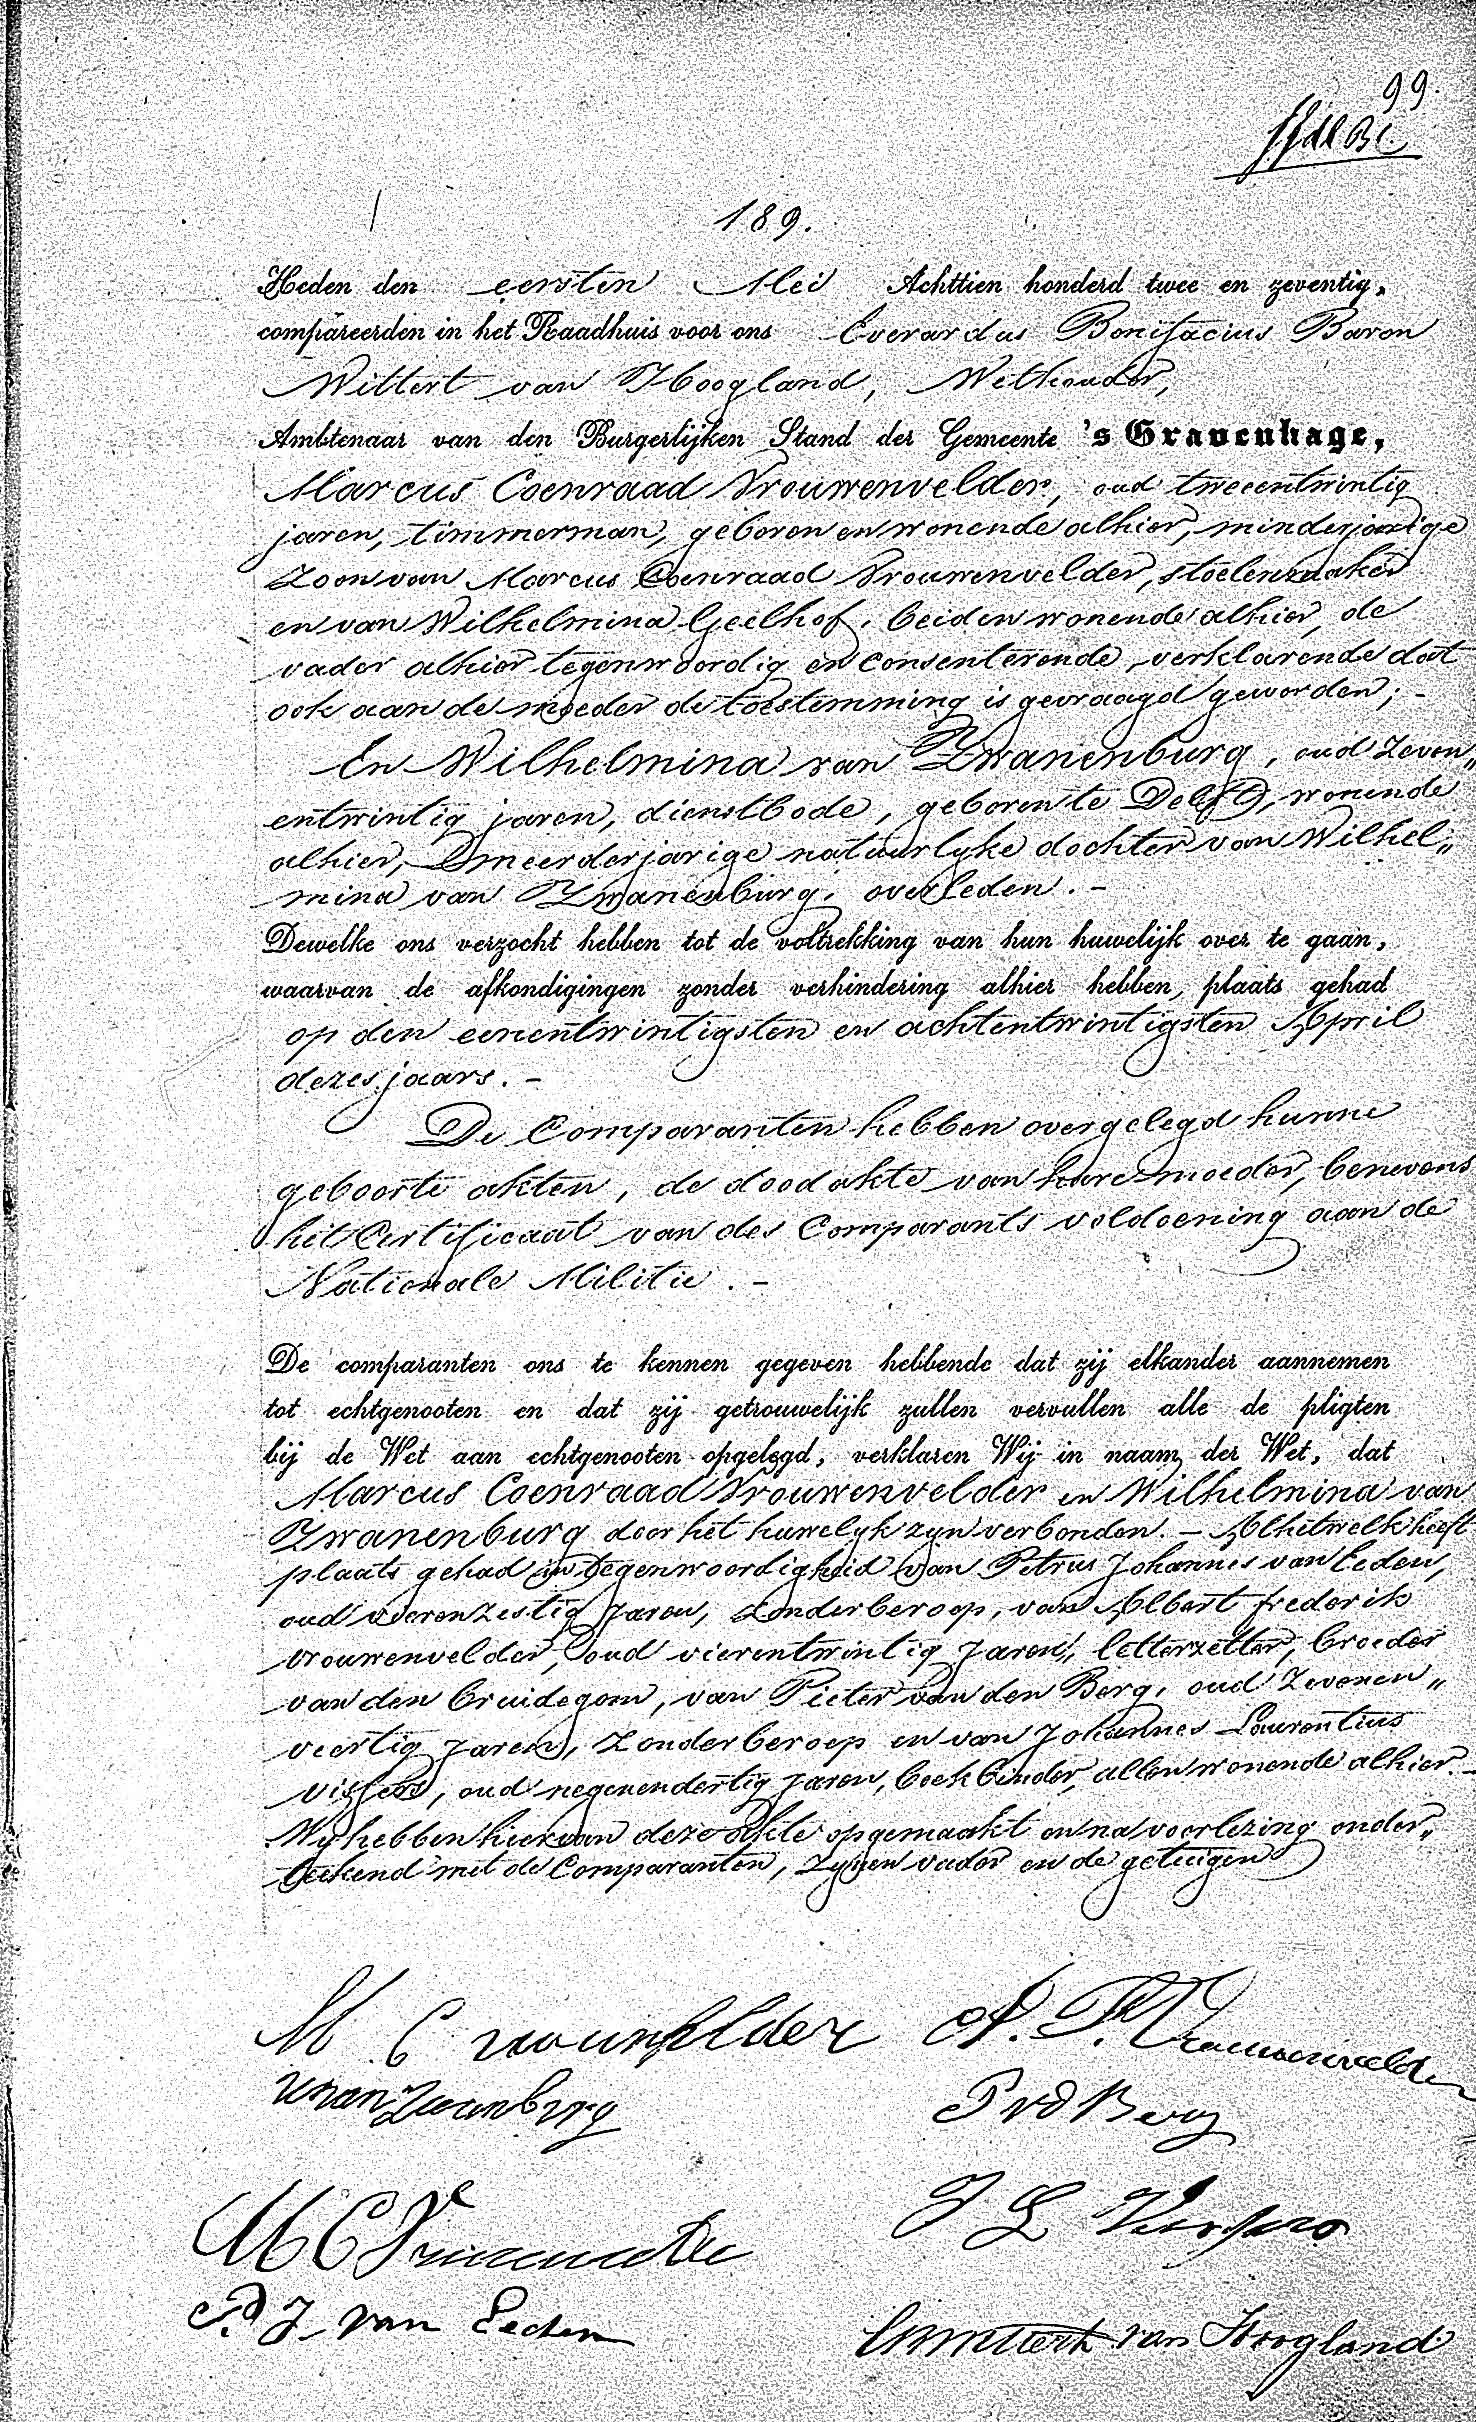 99.
189.
Heden den eersten Mei Achttien honderd twee en zeventig,
compareerden in het Raadhuis voor ons Everardus Bonifacius Baron
Wittert van Hoogland, Wethouder,
Ambtenaar van den Burgerlijken Stand der Gemeente 's Gravenhage,
Marcus Coenraad Vrouwenvelder, oud tweeentwintig
jaren, timmerman, geboren en wonende alhier, minderjarige
Zoon van Marcus Coenraad Vrouwenvelder, stoelenmaker
en van Wilhelmina Geelhof, beiden wonende alhier, de
vader alhier tegenwoordig en consenterende, verklarende dat
ook aan de moeder de toestemming is gevraagd geworden; -
En Wilhelmina van Zwanenburg, oud Zeven„
entwintig jaren, dienstbode, geboren te Delft, wonende
alhier, meerderjarige natuurlyke dochter van Wilhel„
mina van Zwanenburg, overleden. -
Dewelke ons verzocht hebben tot de voltrekking van hun huwelijk over te gaan,
waarvan de afkondigingen zonder verhindering alhier hebben plaats gehad
op den eenentwintigsten en achtentwintigsten April
dezes jaars. -
De Comparanten hebben overgelegd hunne
geboorte akten, de doodakte van hare moeder, benevens
het Certificaat van des Comparants voldoening aan de
Nationale Militie. -
De comparanten ons te kennen gegeven hebbende dat zij elkander aannemen
tot echtgenooten en dat zij getrouwelijk zullen vervullen alle de pligten
bij de Wet aan echtgenooten opgelegd, verklaren Wij in naam der Wet, dat
Marcus Coenraad Vrouwenvelder en Wilhelmina van
Zwanenburg door het huwelyk zyn verbonden. - Al hetwelk heeft
plaats gehad in tegenwoordigheid van Petrus Johannes van Eeden,
oud vierenzestig Jaren, Zonder beroep, van Albert Frederik
Vrouwenvelder, oud vierentwintig Jaren, letterzetter, broeder
van den bruidegom, van Pieter van den Berg, oud Zevenen„
veertig Jaren, Zonder beroep en van Johannes Laurentius
Vissers, oud negenendertig Jaren, boekbinder, allen wonende alhier. -
Wy hebben hiervan deze akte opgemaakt en na voorlezing onder„
teekend met de Comparanten, Zynen vader en de getuigen
M C vrouwnvelder A. F. Vrouwenvelder
W van Zwanburg P vd Berg
M C Vrouwenvelder J L Vissers
P. J. van Eeden EB Wittert van Hoogland